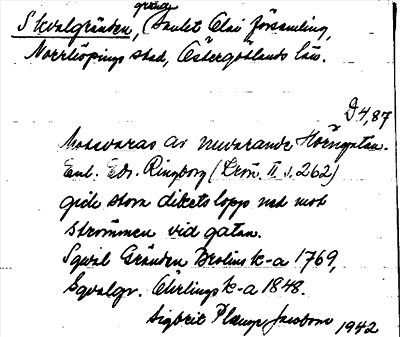 gränd
Skvalgränden, (Sankt Olai församling,
Norrköpings stad, Östergötlands län.
D 4,87
Motsvaras av nuvarande Hörngatan.
Enl. Edv. Ringborg (Krön. II s. 262)
gick stora dikets lopp ned mot
strömmen vid gatan.
Sqwal Gränden Brolins k-a 1769,
Sqvalgr. Ehrlings k-a 1848.
Sigbrit Plænge Jacobson 1942